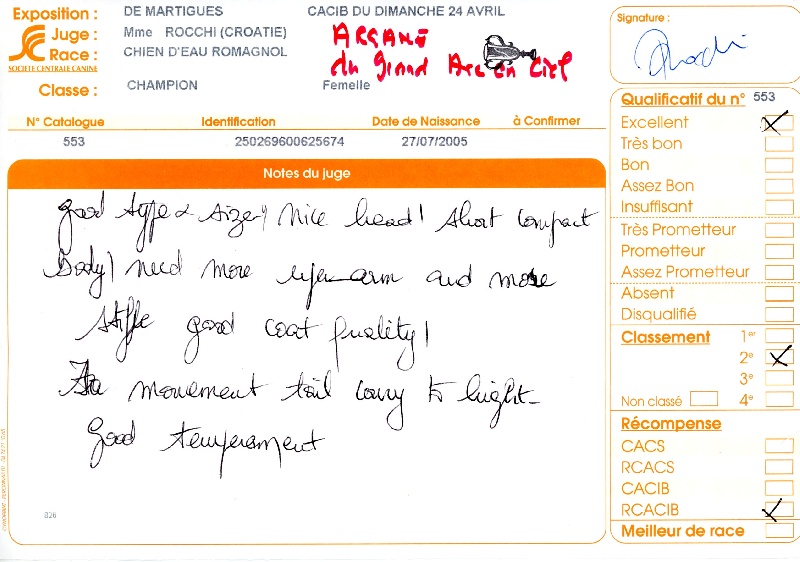 Exposition : DE MARTIGUES CACIB DU DIMANCHE 24 AVRIL
Juge : Mme ROCCHI (CROATIE)
Race : CHIEN D'EAU ROMAGNOL
SOCIÉTÉ CENTRALE CANINE
ARCANE
du Grand Arc en Ciel
Classe : CHAMPION Femelle
N° Catalogue Identification Date de Naissance à Confirmer
553 250269600625674 27/07/2005
Notes du juge
good type & size, nice head, short compact
body, need more uper arm and more
stifle good coat quality,
In movement tail carry to hight-
Good temperament
826
Signature :
Qualificatif du n° 553
Excellent
Très bon
Bon
Assez Bon
Insuffisant
Très Prometteur
Prometteur
Assez Prometteur
Absent
Disqualifié
Classement 1er
2e
3e
Non classé 4e
Récompense
CACS
RCACS
CACIB
RCACIB
Meilleur de race